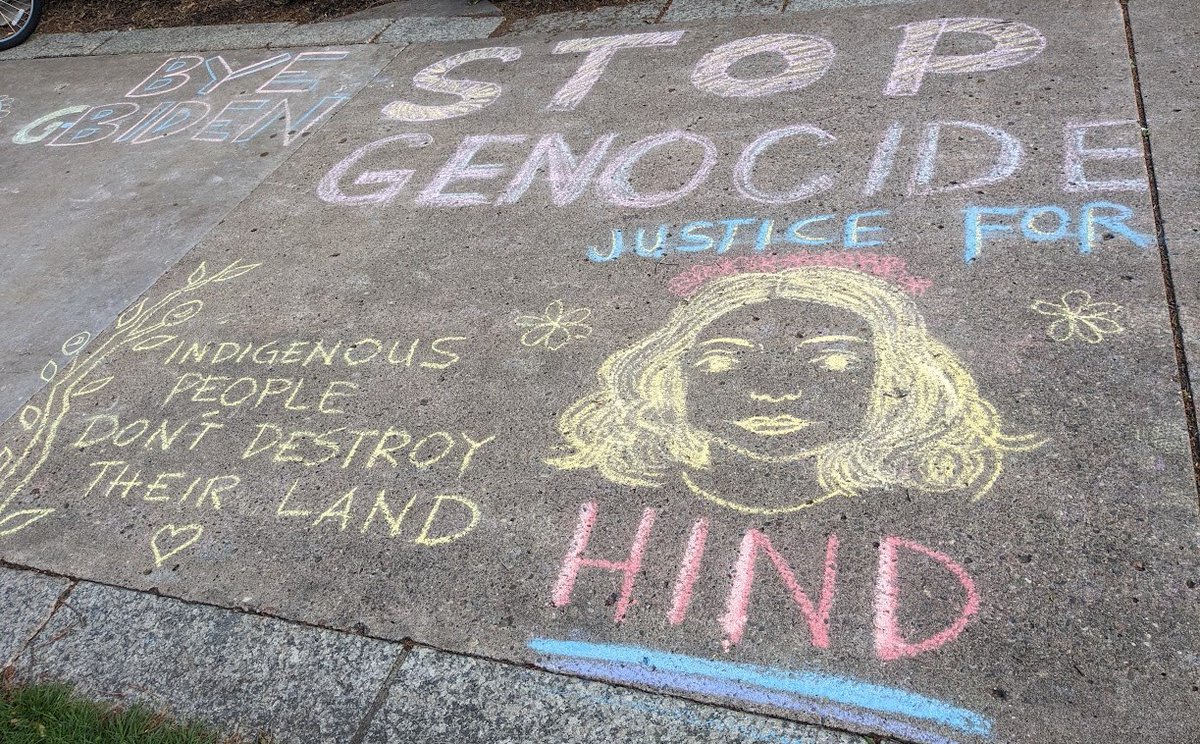 BYE,
G-BIDEN
STOP
GENOCIDE
JUSTICE FOR
HIND
INDIGENOUS
PEOPLE
DON'T DESTROY
THEIR LAND